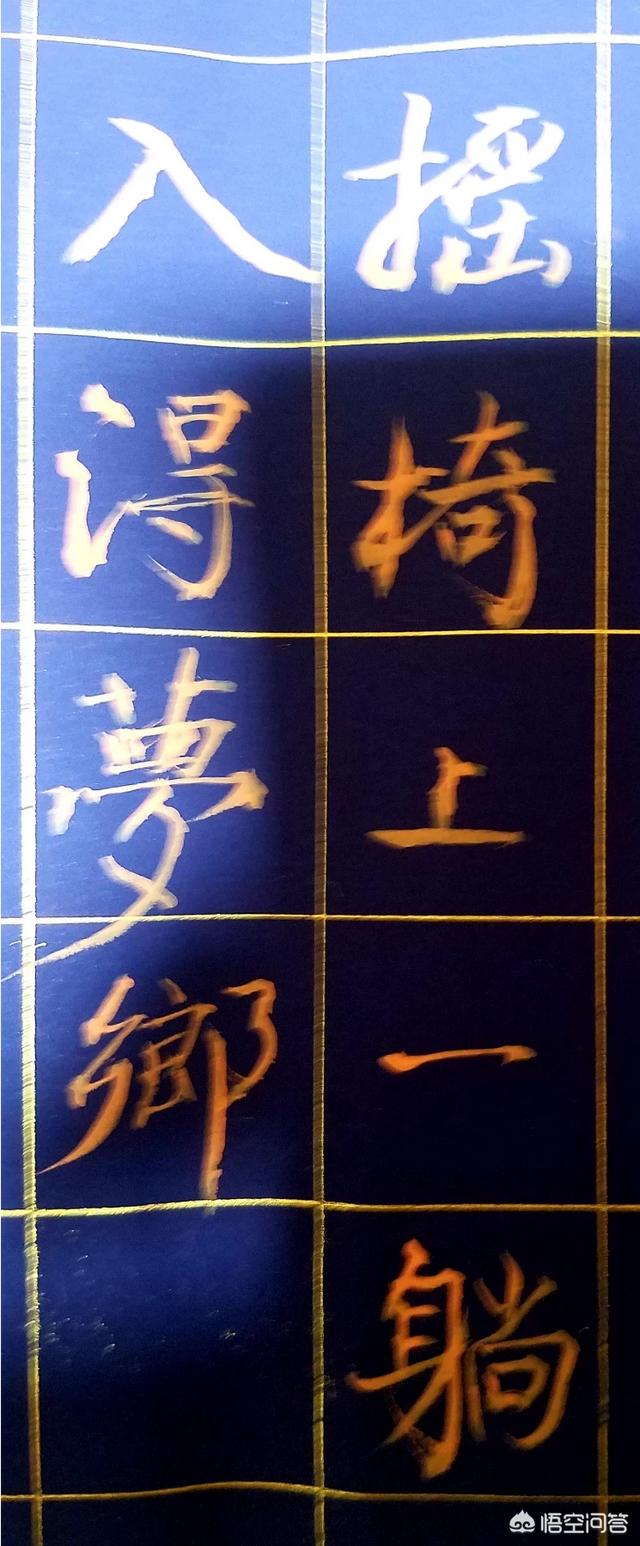 摇椅上一躺
入得夢鄉
悟空问答